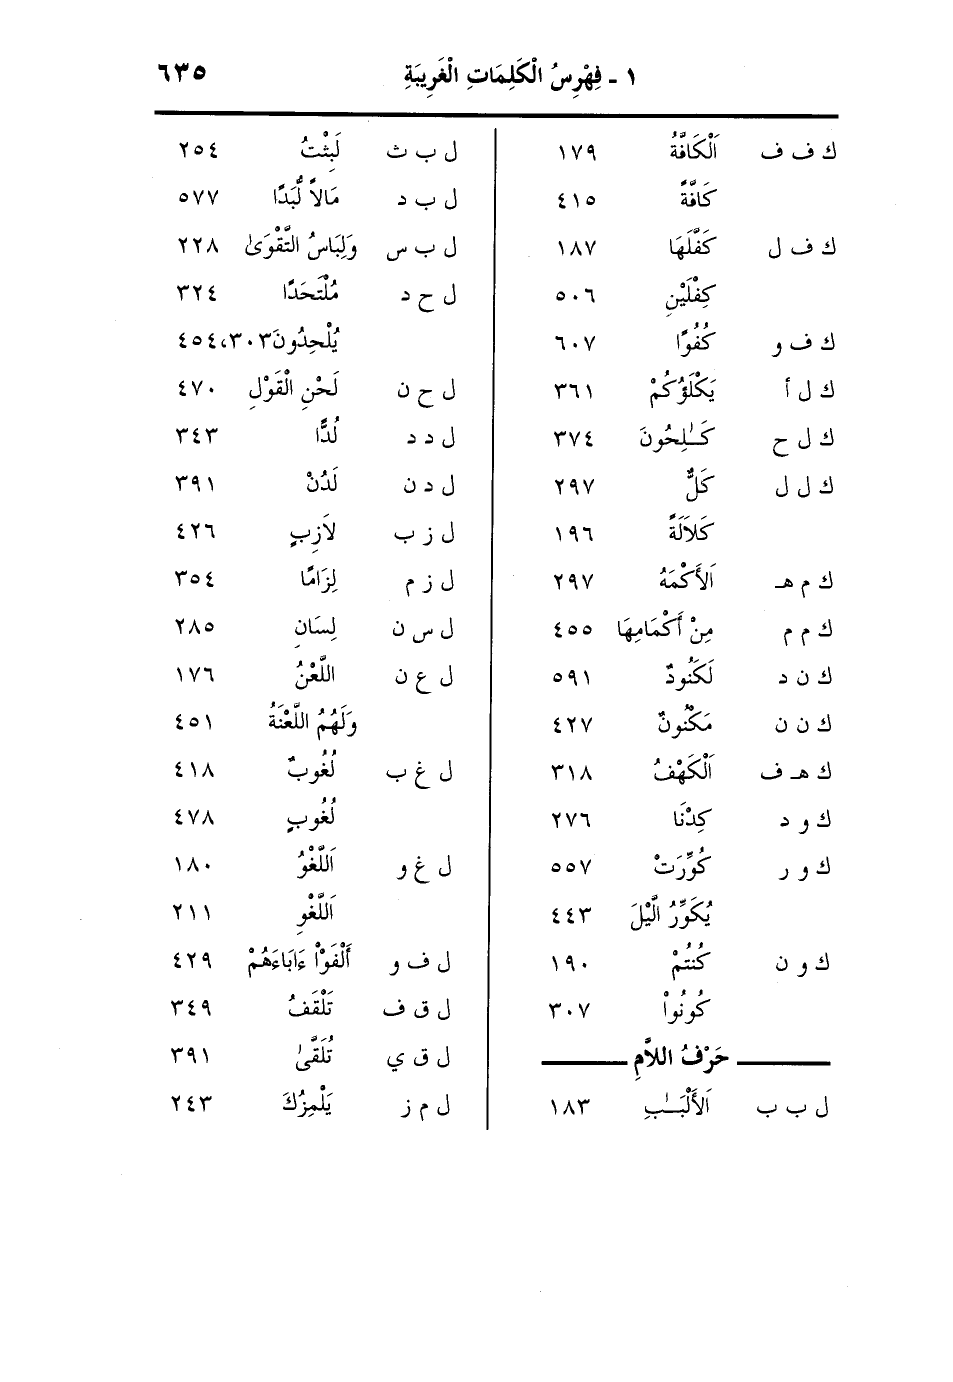 ١ - فِهْرِسُ الْكَلِمَاتِ الْغَرِيبَةِ ٦٣٥
ك ف ف اَلْكَافَّةُ ١٧٩
كَافَّةً ٤١٥
ك ف ل كَفَّلَهَا ١٨٧
كِفْلَيْنِ ٥٠٦
ك ف و كُفُوًا ٦٠٧
ك ل أ يَكْلَؤُكُمْ ٣٦١
ك ل ح كَـٰلِحُونَ ٣٧٤
ك ل ل كَلٌّ ٢٩٧
كَلاَلَةً ١٩٦
ك م هـ اَلأَكْمَهُ ٢٩٧
ك م م مِنْ أَكْمَامِهَا ٤٥٥
ك ن د لَكَنُودٌ ٥٩١
ك ن ن مَكْنُونٌ ٤٢٧
ك هـ ف اَلْكَهْفُ ٣١٨
ك و د كِدْنَا ٢٧٦
ك و ر كُوِّرَتْ ٥٥٧
يُكَوِّرُ الَّيْلَ ٤٤٣
ك و ن كُنتُمْ ١٩٠
كُونُواْ ٣٠٧
حَرْفُ اللاَّمِ
ل ب ب اَلأَلْبَـٰبِ ١٨٣
ل ب ث لَبِثْتُ ٢٥٤
ل ب د مَالاً لُّبَدًا ٥٧٧
ل ب س وَلِبَاسُ التَّقْوَىٰ ٢٢٨
ل ح د مُلْتَحَدًا ٣٢٤
يُلْحِدُونَ ٣٠٣، ٤٥٤
ل ح ن لَحْنِ الْقَوْلِ ٤٧٠
ل د د لُدًّا ٣٤٣
ل د ن لَدُنْ ٣٩١
ل ز ب لاَزِبٍ ٤٢٦
ل ز م لِزَامًا ٣٥٤
ل س ن لِسَانِ ٢٨٥
ل ع ن اللَّعْنُ ١٧٦
وَلَهُمُ اللَّعْنَةُ ٤٥١
ل غ ب لُغُوبٌ ٤١٨
لُغُوبٍ ٤٧٨
ل غ و اَللَّغْوُ ١٨٠
اَللَّغْوِ ٢١١
ل ف و أَلْفَوْاْ ءَابَاءَهُمْ ٤٢٩
ل ق ف تَلْقَفُ ٣٤٩
ل ق ي تُلَقَّىٰ ٣٩١
ل م ز يَلْمِزُكَ ٢٤٣